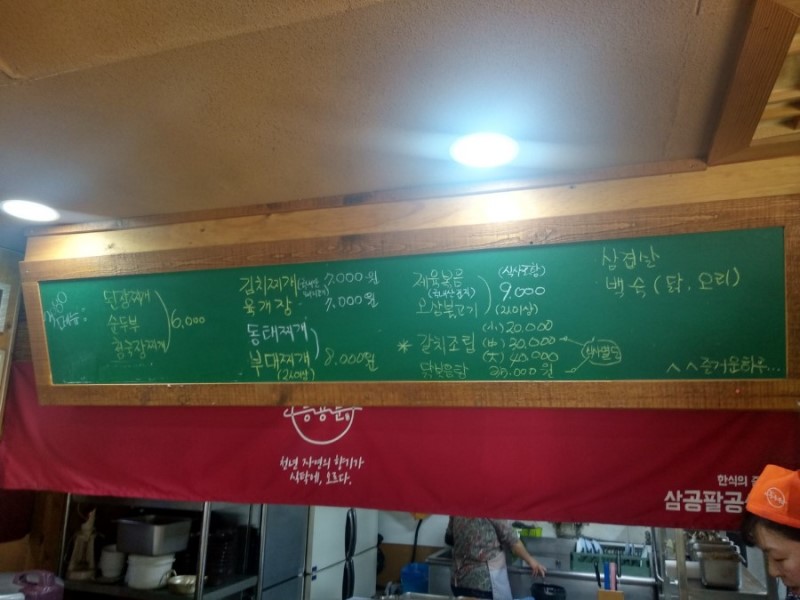 된장찌개
순두부
청국장찌개
6,000
김치찌개 7,000원
육개장 7,000원
동태찌개
부대찌개 8,000원
(2인이상)
제육볶음 (식사포함)
(국내산돼지) 9,000
오삼불고기 (2인이상)
* 갈치조림 (小) 20,000
(中) 30,000
(大) 40,000
닭볶음탕 원
삼겹살
백숙 (닭, 오리)
^^즐거운하루...
청년 자연의 향기가
식탁에, 오르다.
한식의
삼공팔공